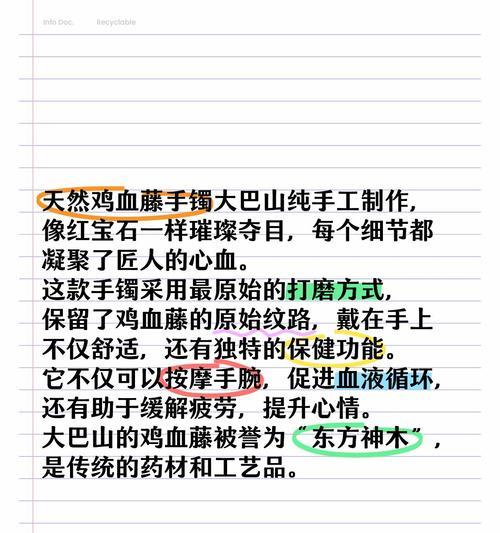 Info Doc. Recyclable
天然鸡血藤手镯大巴山纯手工制作,
像红宝石一样璀璨夺目, 每个细节都
凝聚了匠人的心血。
这款手镯采用最原始的打磨方式,
保留了鸡血藤的原始纹路, 戴在手上
不仅舒适, 还有独特的保健功能。
它不仅可以按摩手腕, 促进血液循环,
还有助于缓解疲劳, 提升心情。
大巴山的鸡血藤被誉为“东方神木”,
是传统的药材和工艺品。